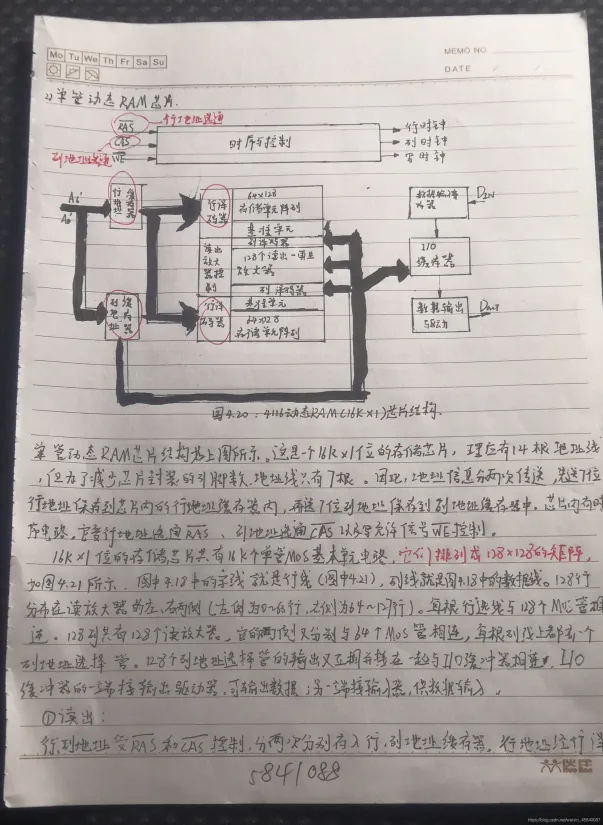 Mo Tu We Th Fr Sa Su
MEMO NO.
DATE / /
2) 单管动态RAM芯片.
RAS 行地址选通
CAS
列地址选通 WE
时序与控制
行时钟
列时钟
写时钟
A6'
A0'
行地址 缓存器
行译码器
64×128
存储单元阵列
基准单元
列译码器
读出放大器控制
128个读出一再生
放大器
列译码器
基准单元
行译码器
64×128
存储单元阵列
列地址 缓存器
数据输入寄存器
DIN
I/O
缓冲器
数据输出
驱动
DOUT
图4.20:4116动态RAM(16K×1)芯片结构.
单管动态RAM芯片结构如上图所示。这是一个16K×1位的存储芯片,理应有14根地址线
,但为了减少芯片封装的引脚数,地址线只有7根。因此,地址信息分两次传送,先送7位
行地址保存到芯片内的行地址缓存器内,再送7位列地址保存到列地址缓存器中。芯片内有时
序电路,它受行地址选通RAS、列地址选通CAS以及写允许信号WE控制。
16K×1位的存储芯片共有16K个单管MOS基本单元电路,它们排列成128×128的矩阵,
如图4.21所示。图中4.18中的字线就是行线(图中4.21),列线就是图4.18中的数据线。128行
分布在读放大器的左、右两侧(左侧为0~63行,右侧为64~127行)。每根行选线与128个MOS管相
连。128列共有128个读放大器,它的两侧又分别与64个MOS管相连,每根列线上都有一个
列地址选择管。128个列地址选择管的输出又互相并接在一起与I/O缓冲器相连,I/O
缓冲器的一端接输出驱动器,可输出数据;另一端接输入器,供数据输入。
①读出:
行、列地址受RAS和CAS控制,分两次分别存入行、列地址缓存器。行地址经行译
5841088
https://blog.csdn.net/weixin_45649087